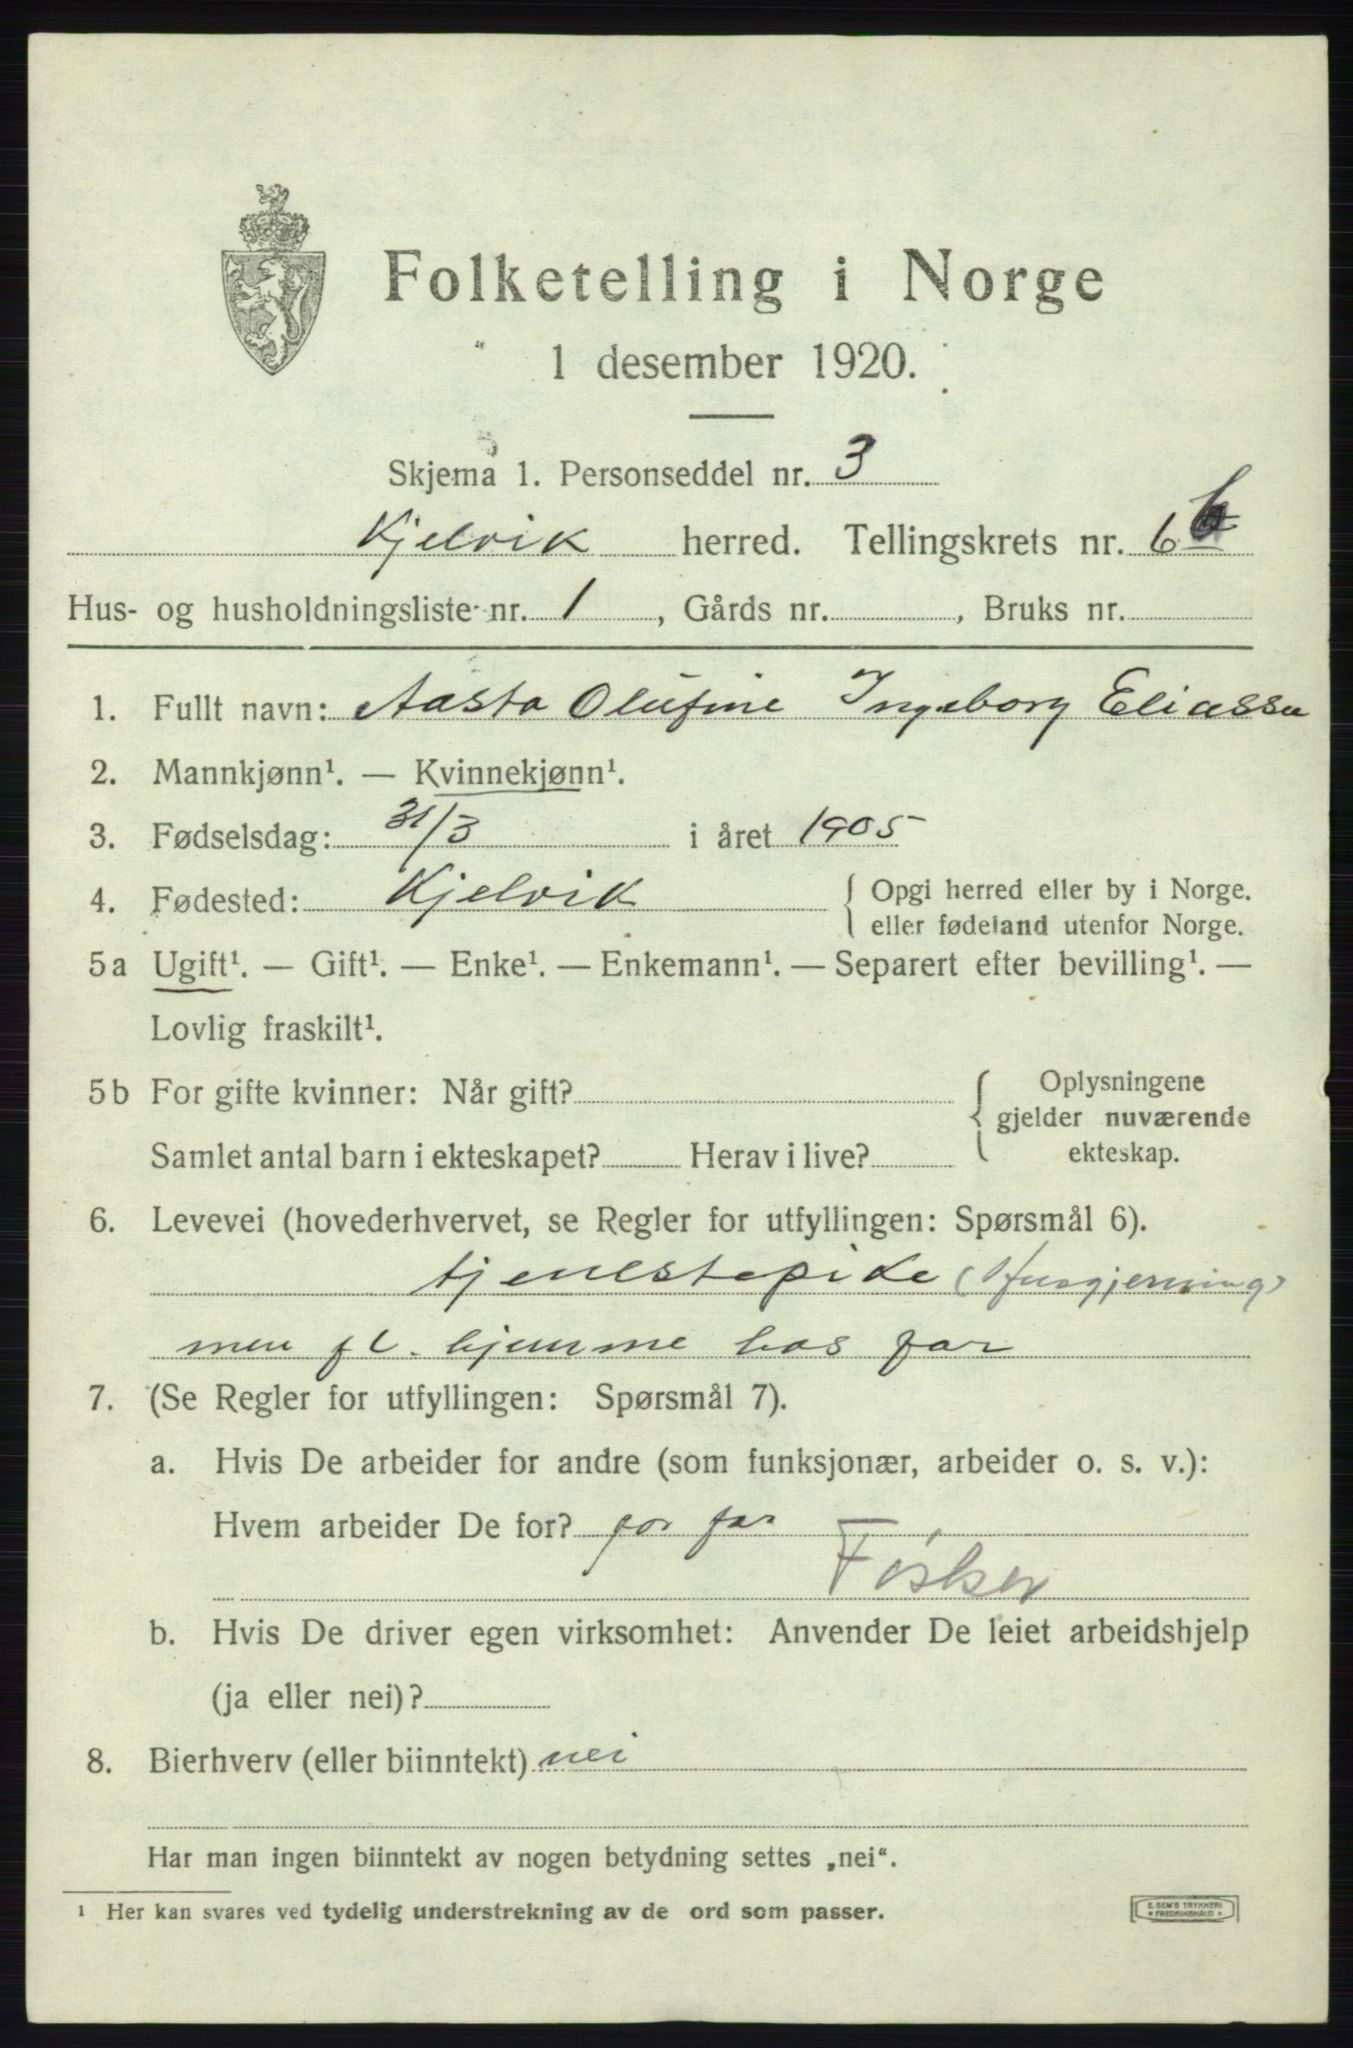 Folketelling i Norge
1 desember 1920.
Skjema 1. Personseddel nr. 3
Kjelvik herred. Tellingskrets nr. 6 b
Hus- og husholdningsliste nr. 1, Gårds nr. , Bruks nr.
1. Fullt navn: Aasta Olufine Ingeborg Eliassen
2. Mannkjønn¹. — Kvinnekjønn¹.
3. Fødselsdag: 31/3 i året 1905
4. Fødested: Kjelvik { Opgi herred eller by i Norge.
eller fødeland utenfor Norge.
5 a Ugift¹. — Gift¹. — Enke¹. — Enkemann¹. — Separert efter bevilling¹. —
Lovlig fraskilt¹.
5 b For gifte kvinner: Når gift? { Oplysningene
gjelder nuværende
Samlet antal barn i ekteskapet? Herav i live? ekteskap.
6. Levevei (hovederhvervet, se Regler for utfyllingen: Spørsmål 6).
tjenestepike (Husgjerning)
men hjemme hos far
7. (Se Regler for utfyllingen: Spørsmål 7).
a. Hvis De arbeider for andre (som funksjonær, arbeider o. s. v.):
Hvem arbeider De for? for far
Fisker
b. Hvis De driver egen virksomhet: Anvender De leiet arbeidshjelp
(ja eller nei)?
8. Bierhverv (eller biinntekt) nei
Har man ingen biinntekt av nogen betydning settes „nei“.
¹ Her kan svares ved tydelig understrekning av de ord som passer.
E. SEM'S TRYKKERI
* FREDRIKSHALD *